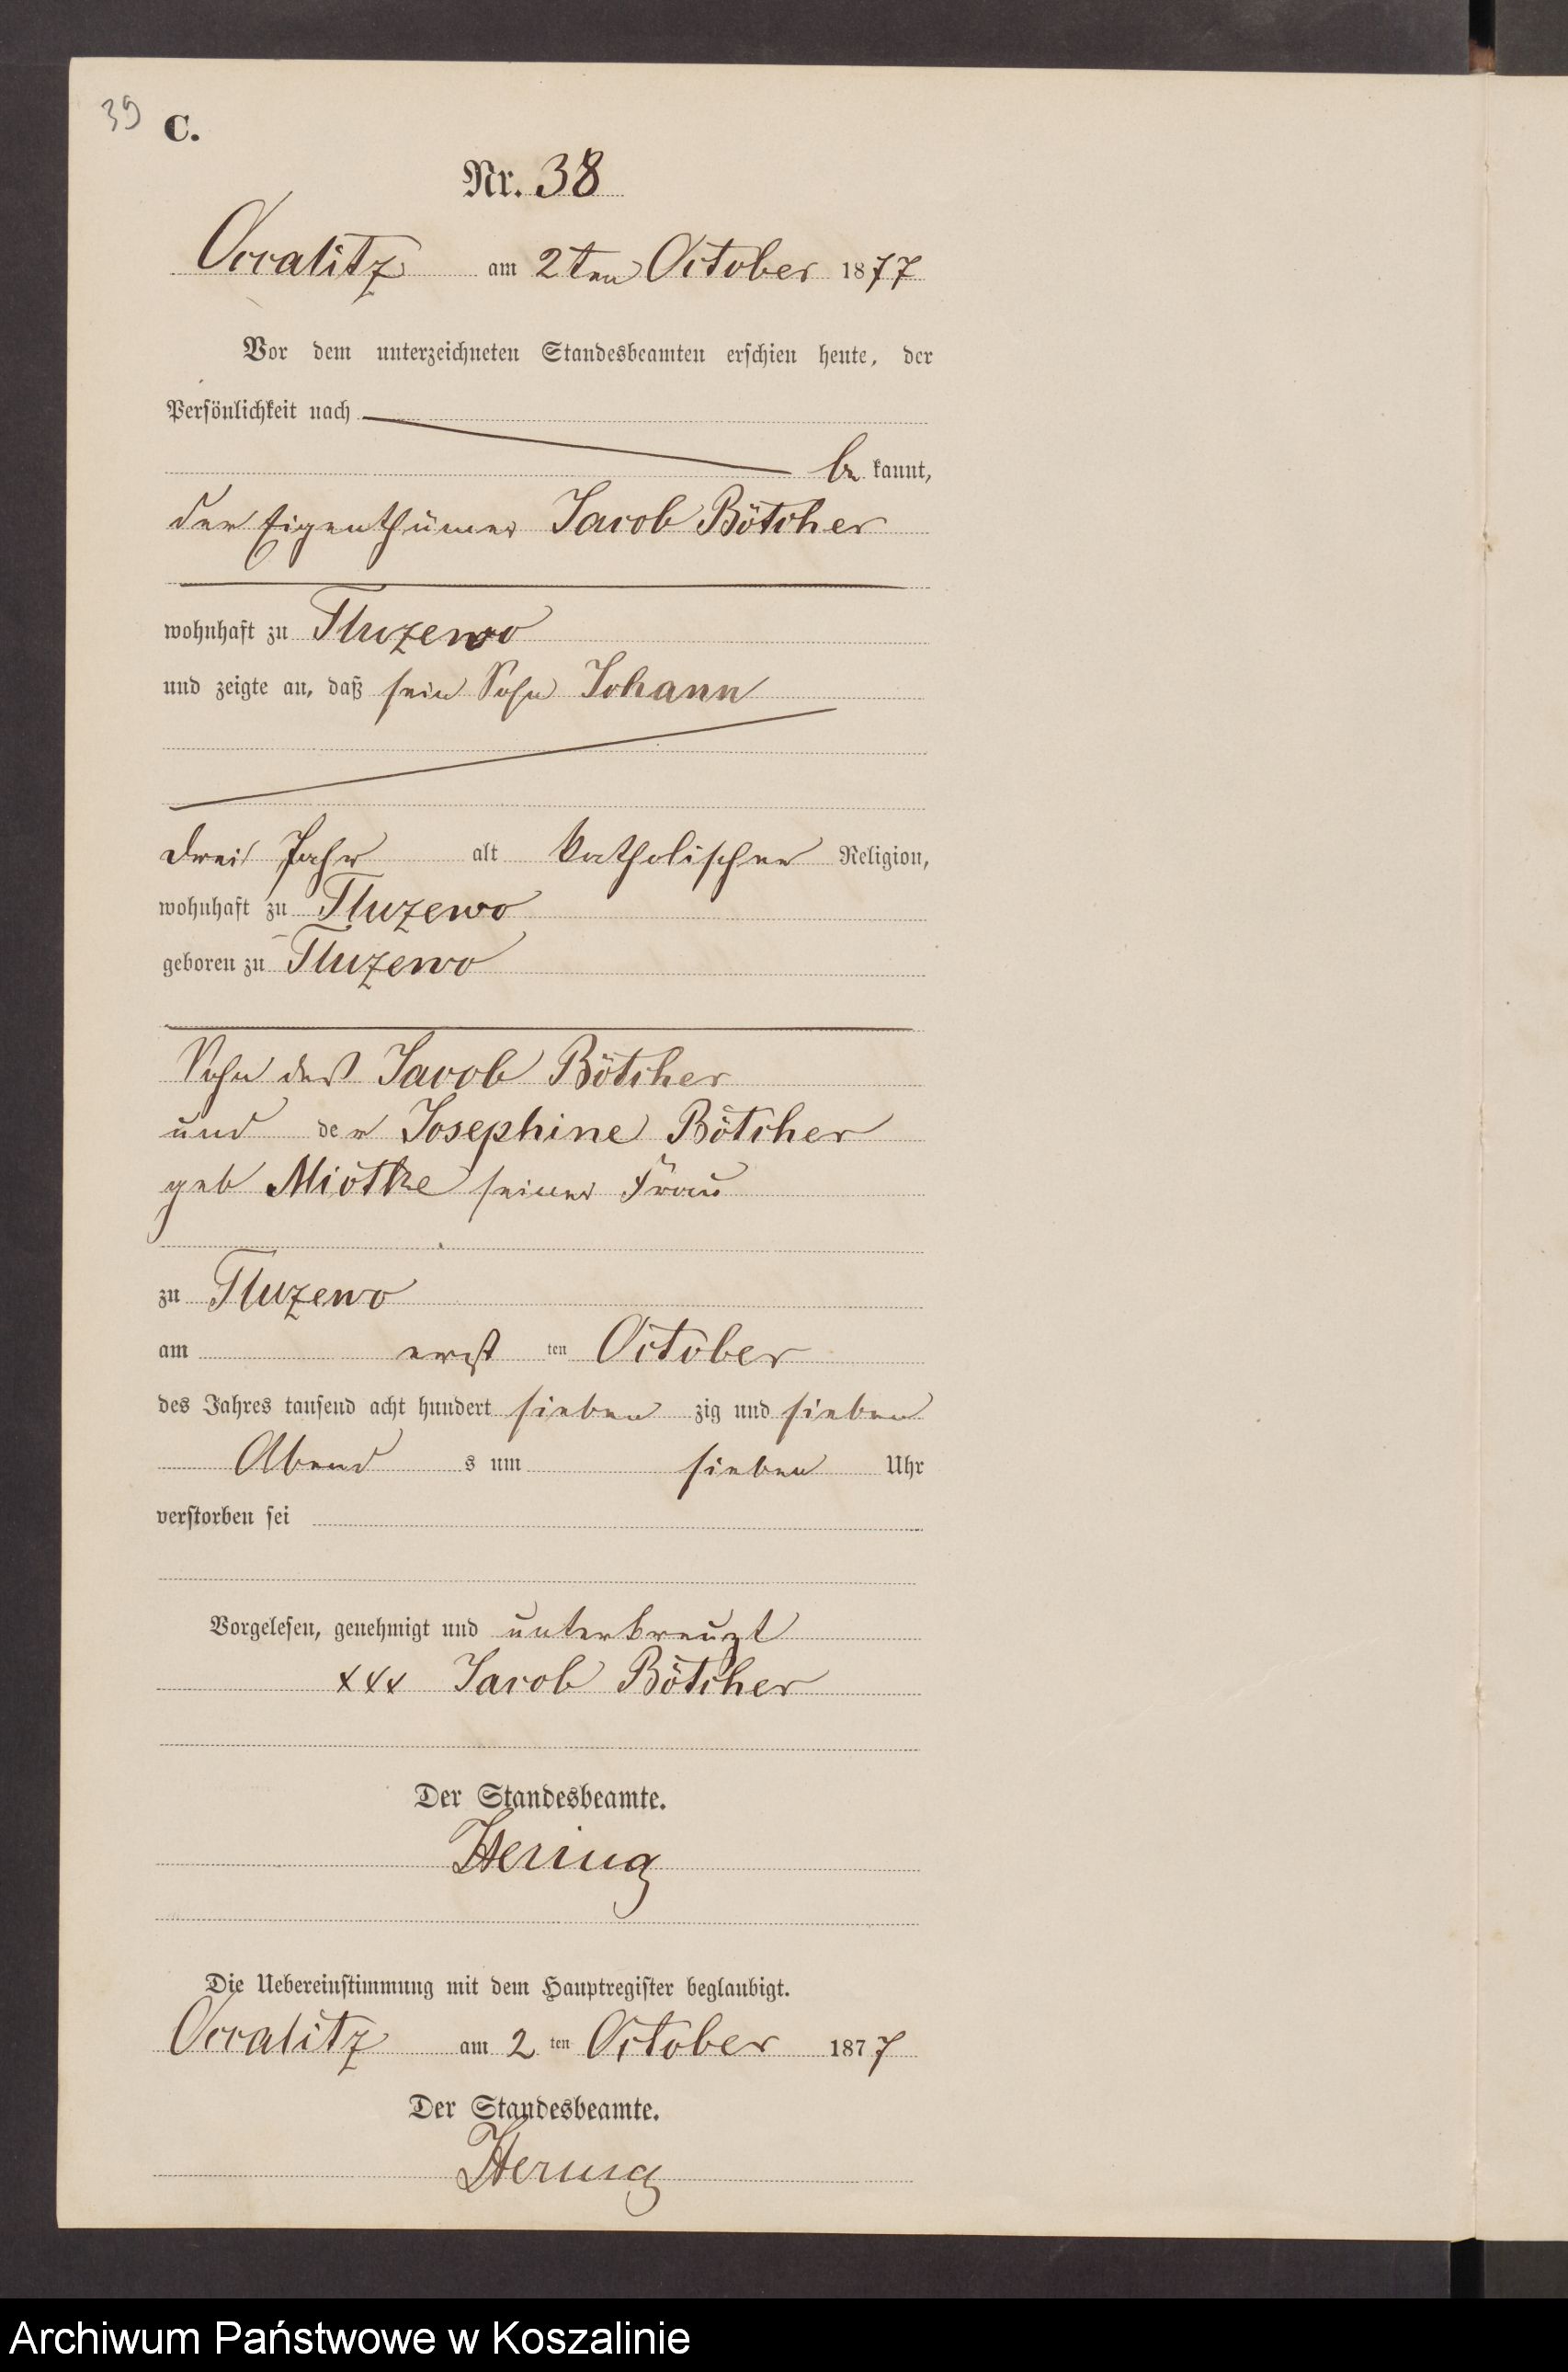 39
C.
Nr. 38
Occalitz am 2ten October 1877
Vor dem unterzeichneten Standesbeamten erschien heute, der
Persönlichkeit nach
be kannt,
der Eigenthümer Jacob Bötcher
wohnhaft zu Tluzewo
und zeigte an, daß sein Sohn Johann
drei Jahr alt katholischer Religion,
wohnhaft zu Tluzewo
geboren zu Tluzewo
Sohn des Jacob Bötcher
und der Josephine Bötcher
geb Miotke seiner Frau
zu Tluzewo
am erst ten October
des Jahres tausend acht hundert sieben zig und sieben
Abend s um sieben Uhr
verstorben sei
Vorgelesen, genehmigt und unterkreuzt
xxx Jacob Bötcher
Der Standesbeamte.
Hering
Die Uebereinstimmung mit dem Hauptregister beglaubigt.
Occalitz am 2 ten October 1877
Der Standesbeamte.
Hering
Archiwum Państwowe w Koszalinie